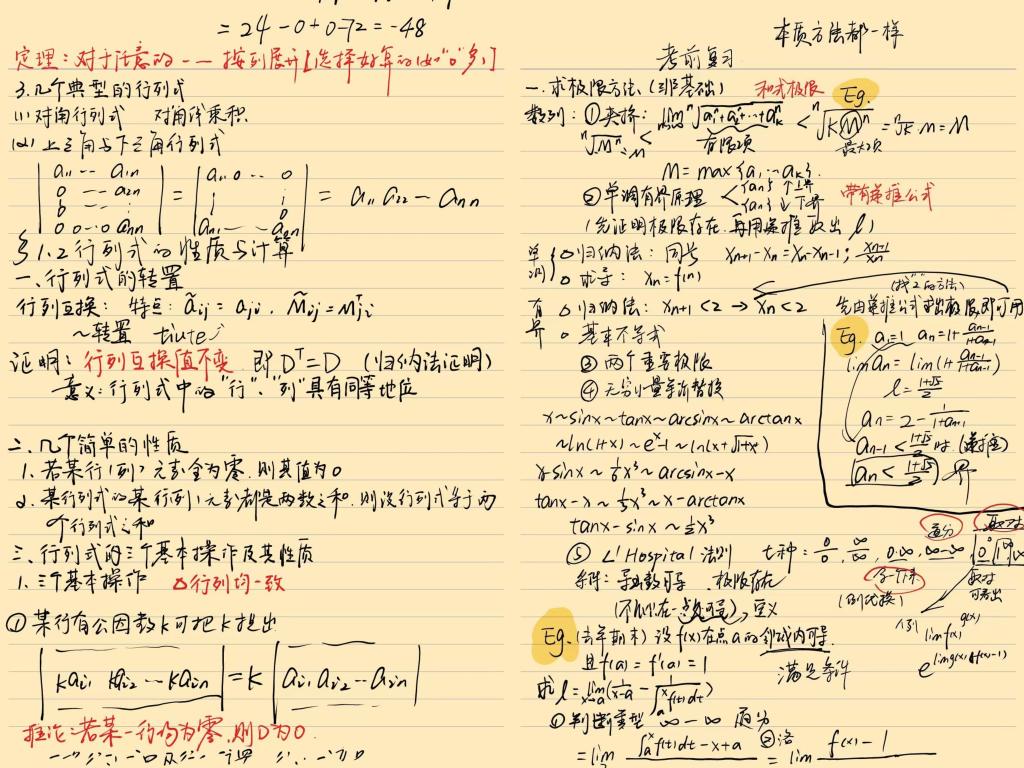 = 24-0+0-72 = -48
定理：对于任意的 一一 按列展开[选择好算的(如"0"多)]
3.几个典型的行列式
(1)对角行列式 对角线乘积
(2)上三角与下三角行列式
| a₁₁ ‥ a₁ₙ | = | a₁₁ 0 ‥ 0 | = a₁₁ a₂₂ — aₙₙ
0 ‥ a₂ₙ
0 ‥
0 0 ‥ 0 aₙₙ | aₙ₁ ‥ aₙₙ |
§1.2 行列式的性质与计算
一、行列式的转置
行列互换： 特点：ãij = aji . M̃ij = Mᵀji
~转置
证明：行列互换值不变 即 Dᵀ=D (归纳法证明)
意义：行列式中的"行"、"列"具有同等地位
二、几个简单的性质
1.若某行(列)元素全为零，则其值为0
2.某行列式的某行(列)元素都是两数之和，则该行列式等于两
个行列式之和
三、行列式的三个基本操作及其性质
1.三个基本操作 △行列均一致
①某行有公因数k可把k提出
| kai₁ kai₂ ‥ kain | = k | ai₁ ai₂ — ain |
推论：若某一行均为零，则D为0.
本质方法都一样
考前复习
一.求极限方法(非基础) 和式极限 Eg.
数列：①夹挤：ⁿ√Mⁿ=M < lim ⁿ√a₁ⁿ+a₂ⁿ+‥+aₖⁿ < ⁿ√kMⁿ = ⁿ√k M = M
有限项 最大项
M = max{a₁ ‥ aₖ}.
②单调有界原理 < {an}↑上界 {an}↓下界 带有递推公式
(先证明极限存在，再用递推取出 l)
单调 {○归纳法：同号 xn+1-xn = xn-xn-1; xn+1/xn
○求导：xn=f(n)
(找"2"的方法)
有界 ○归纳法：xn+1<2 → xn<2 先由递推公式求出极限即可用
○基本不等式
③两个重要极限
④无穷小量等价替换
x~sinx~tanx~arcsinx~arctanx
~ln(1+x)~eˣ-1~ln(x+√1+x)
x-sinx~⅙x³~arcsinx-x
tanx-x~⅓x³~x-arctanx
tanx-sinx~½x³
Eg. a₁=1 an=1+ an-1/1+an-1
lim an = lim(1+ an-1/1+an-1)
l = 1+√5/2
an = 2- 1/1+an-1
an-1 < 1+√5/2 时 (递推)
an < 1+√5/2 界
通分 取对
⑤ L'Hospital 法则 七种：0/0, ∞/∞, 0·∞, ∞-∞, 0⁰, 1^∞
条件：导函数可导、极限存在 取对
(倒代换)
例
lim f(x)^g(x)
e^lim g(x)(f(x)-1)
Eg. (去年期末) 设f(x)在点a的邻域内可导
且f(a)=f'(a)=1 满足条件
求 l = lim x→a (1/x-a - 1/∫ₐˣf(t)dt)
①判断类型 ∞-∞ 通分
= lim ∫ₐˣf(t)dt-x+a ②洛 = lim f(x)-1